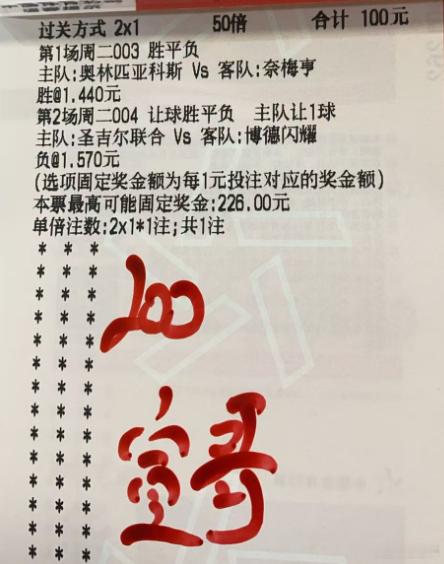 过关方式 2x1 50倍 合计 100元
第1场周二003 胜平负
主队:奥林匹亚科斯 Vs 客队:奈梅亨
胜@1.440元
第2场周二004 让球胜平负 主队让1球
主队:圣吉尔联合 Vs 客队:博德闪耀
负@1.570元
(选项固定奖金额为每1元投注对应的奖金额)
本票最高可能固定奖金:226.00元
单倍注数:2x1*1注;共1注
* * *
* * *
* * *
* * *
* * *
* * *
* * *
* * *
* * *
* * *
* * *
* * *
* * *
* * *